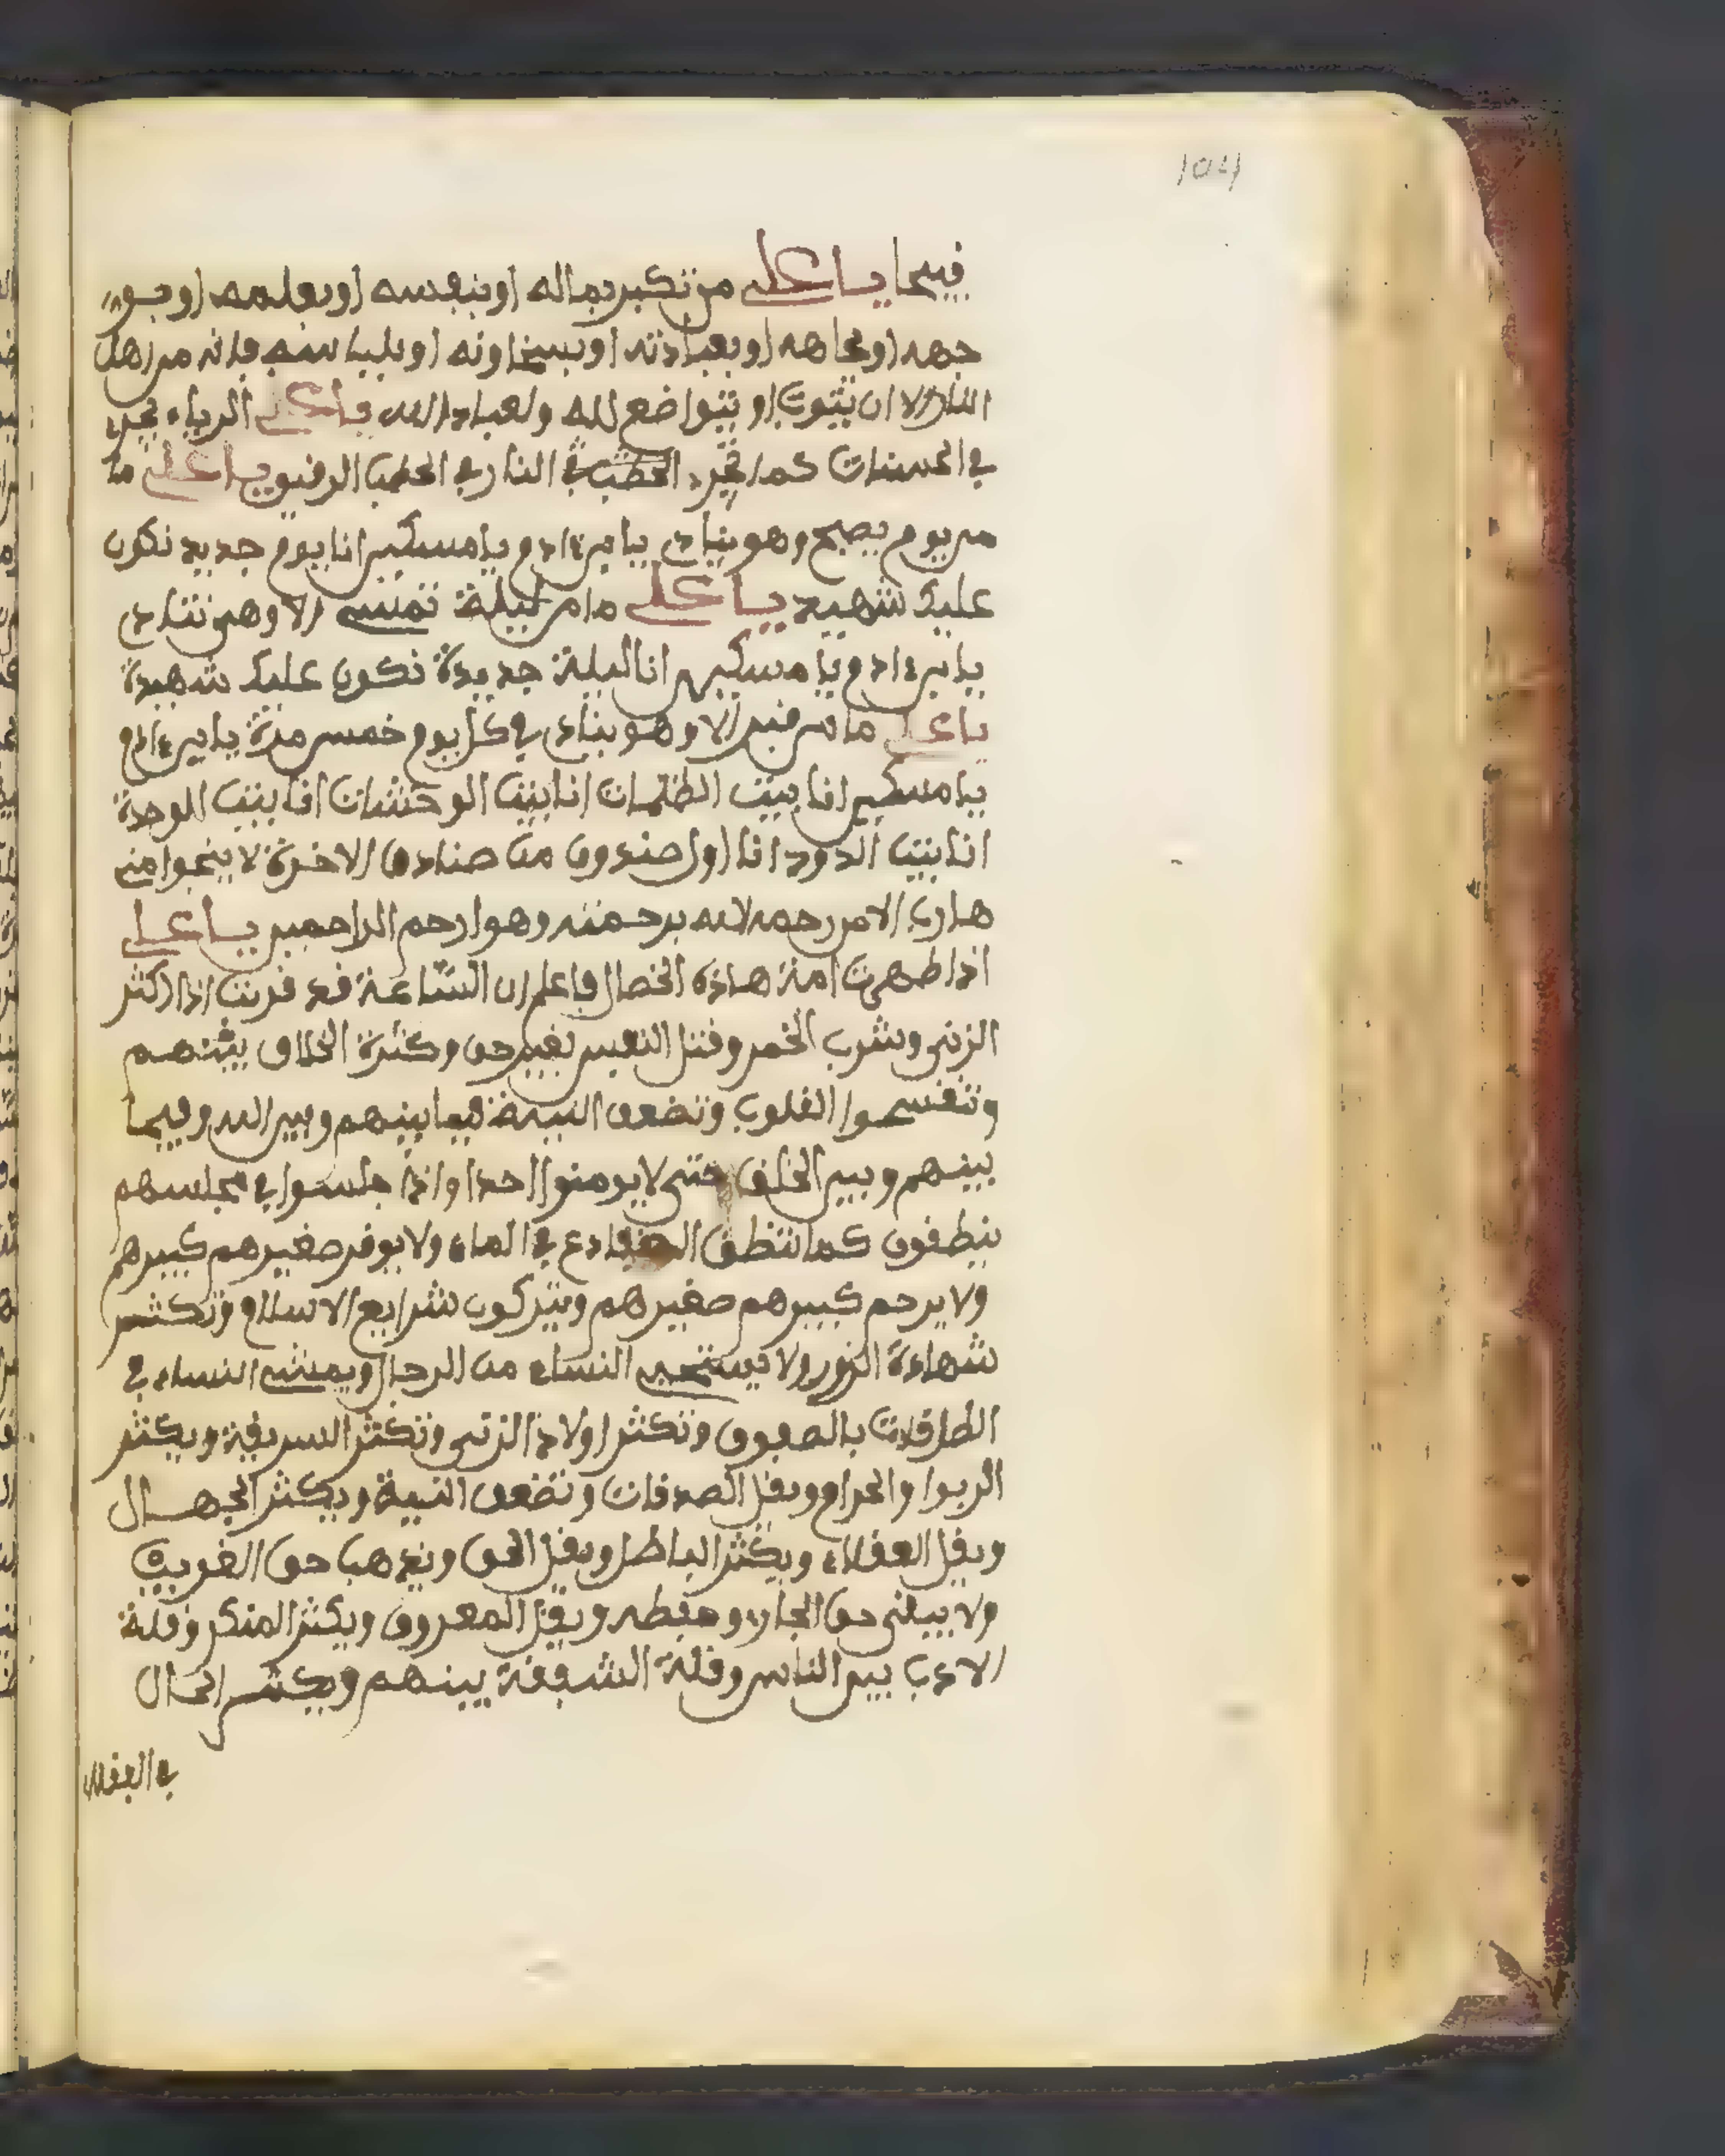 104
فيها يا على من تكبر بماله او بنفسه او بعلمه او بـو
جهه او بجاهه او بعبادته او بسخاوته او بلباسه فانه من اهل
النار الا ان يتوب او يتواضع لله ولعباد الله يا على الرياء تجرى
في الحسنات كما تجرء الحطب في النار في الحطب الرقيق يا على ما
من يوم يصبح وهو ينادى يا بن ءادم يا مسكين انا يوم جديد نكون
عليك شهيد يا على ما من ليلة تمسى الا وهى تنادى
يا بن ءادم يا مسكين انا ليلة جديدة نكون عليك شهيدة
يا على ما من قبر الا وهو ينادى في كل يوم خمس مرة يا بن ءادم
يا مسكين انا بيت الظلمات انا بيت الوحشات انا بيت الوحدة
انا بيت الدود انا اول صندوق من صنادق الاخرة لا ينجوا منه
هارب الا من رحمه الله برحمته وهو ارحم الراحمين يا على
اذا ظهرت امة هاذه الخصال فاعلم ان الساعة قد قربت اذا اكثر
الزنى وشرب الخمر وقتل النفس بغير حق وكثرة الخلاف بينهم
وتقسموا القلوب وتضعف النية فيما بينهم وبين الله وفيما
بينهم وبين الخلق حتى لا يومنوا احدا واذا جلسوا في مجلسهم
ينطقون كما تنطق الضفادع في الماء ولا يوقر صغيرهم كبيرهم
ولا يرحم كبيرهم صغيرهم ويتركون شرايع الاسلام وتكثر
شهادة الزور ولا يستحى النساء من الرجال ويمشى النساء في
الطرقات بالصفوف وتكثر اولاد الزنى وتكثر السريقة ويكثر
الربوا والحرام ويقل الصدقات وتضعف النية ويكثر الجهال
ويقل العقلاء ويكثر الباطل ويقل الحق ويذهب حق الغريب
ولا يبقى حق الجار وحفظه ويقل المعروف ويكثر المنكر وقلة
الادب بين الناس وقلة الشفقة بينهم ويكثر المال